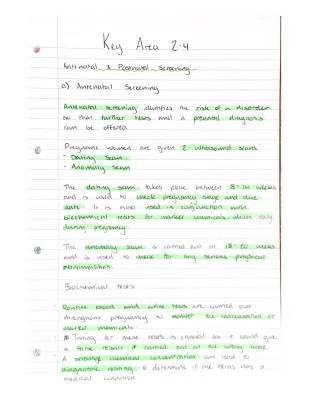 Key Area 2.4
Antenatal & Postnatal Screening
a) Antenatal Screening
Antenatal screening identifies the risk of a disorder
so that further tests and a prenatal diagnosis
can be offered
Pregnant women are given 2 ultrasound scans
- Dating Scan
- Anomaly Scan
The dating scan takes place between 8-14 weeks
and is used to check pregnancy stage and due
date. It is also used in conjunction with
biochemical tests for marker chemicals which vary
during pregnancy
The anomaly scan is carried out at 18-20 weeks
and is used to check for any serious physical
abnormalities
Biochemical tests
Routine blood and urine tests are carried out
throughout pregnancy to monitor the concentration of
marker chemicals
Timing for these tests is crucial as it could give
a false result if carried out at the wrong time
A chemical concentration can lead to
diagnostic testing to determine if the fetus has a
medical condition